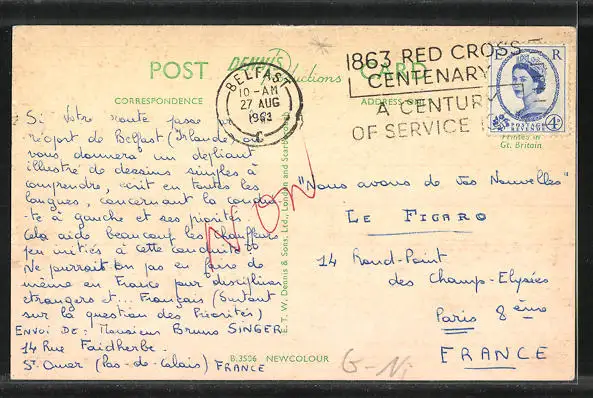 POST CARD
DENNIS
Productions
CORRESPONDENCE
ADDRESS ONLY
BELFAST
10-AM
27 AUG
1963
C
1863 RED CROSS
CENTENARY
A CENTURY
OF SERVICE
E R
POSTAGE
REVENUE
4D
Printed in
Gt. Britain
Si Votre route passe par
l'éport de Belfast (Irlande) on
vous donnera un dépliant
illustré de dessins simples à
comprendre, écrit en toutes les
langues, concernant la condui-
te à gauche et ses priorités.
Cela aide beaucoup les chauffeurs
peu initiés à cette conduite.
Ne pourrait-on pas en faire de
même en France pour discipliner
étrangers et... Français (Surtout
sur la question des Priorités)
ENVOI DE: Monsieur Bruno SINGER
14 Rue Faidherbe
St. Omer (Pas-de-Calais) FRANCE
NON
E. T. W. Dennis & Sons, Ltd., London and Scarborough
"Nous avons de vos Nouvelles"
LE FIGARO
14 Rond-Point
des Champ-Elysées
Paris 8ème
FRANCE
B.3586 NEWCOLOUR
G-Ni